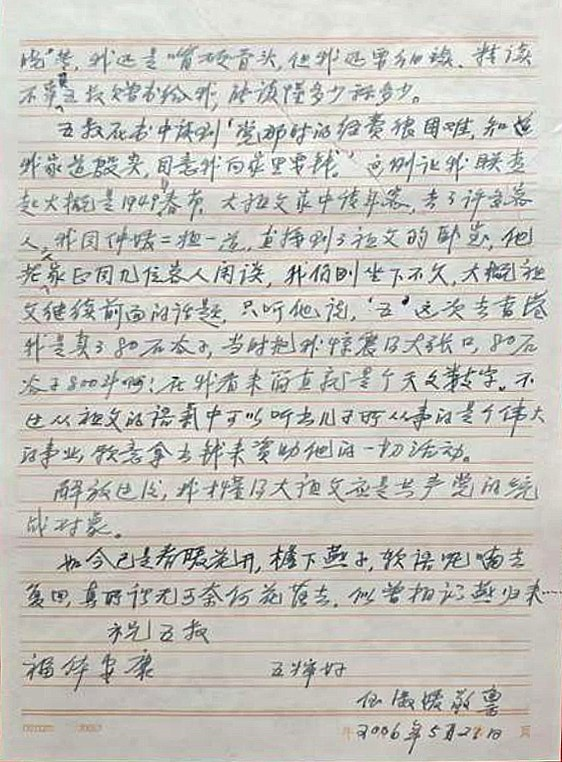 晓", 我还是"啃硬骨头, 但我还要细读、精读
不辜五叔赠书给我, 能读懂多少称多少。
五叔在书中谈到"党那时的经费很困难, 知道
我家道殷实, 同意我向家里要钱。"这则让我联想
起大概是1949春节, 大祖父家中请年客, 来了许多客
人, 我同仲媛二姐一道, 直接到了祖父的卧室, 他
老家正同几位客人闲谈, 我俩则坐下不久, 大概祖
父继续前面的话题, 只听他说, "五"这次去香港
我是卖了80石谷子, 当时把我惊震得大张口, 80石
谷子800斗啊! 在我看来简直就是个天文数字。不
过从祖父的语气中可以听出儿子所从事的是个伟大
的事业, 愿意拿出钱来资助他的一切活动。
解放过后, 我才懂得大祖父应是共产党的统
战对象。
如今已是春暖花开, 檐下燕子, 软语呢喃去
复回, 真可谓无可奈何花落去, 似曾相识燕归来……
祝五叔
福体安康 五婶好
侄 媛敬书
2006年5月21日 页